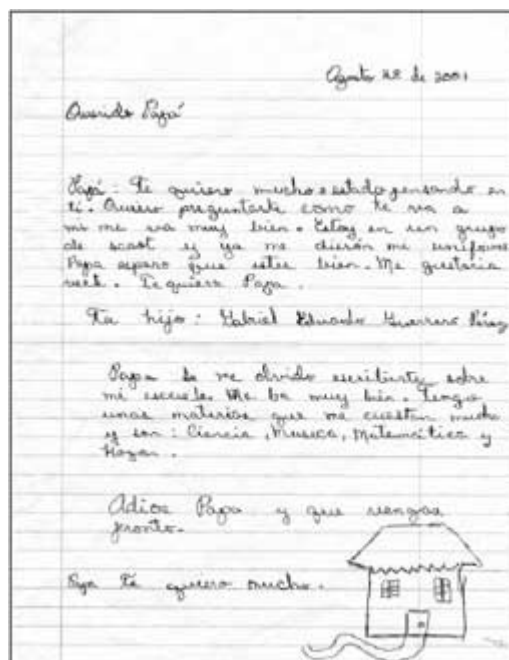 Agosto 22 de 2001
Querido Papá
Papá: Te quiero mucho e estado pensando en
ti. Quiero preguntarte como te va a
mi me va muy bien. Estoy en un grupo
de scaot y ya me dierón mi uniforme
Papa espero que estes bien. Me gustaria
verte. Te quiero Papa.
Tu hijo: Gabriel Eduardo Guerrero Pérez
Papa Se me olvido escribirte sobre
mi escuela. Me ba muy bien. Tengo
unas materias que me cuestan mucho
y son: Ciencia, Musica, Matemática y
Hogar.
Adios Papa y que vengas
pronto.
Papa te quiero mucho.